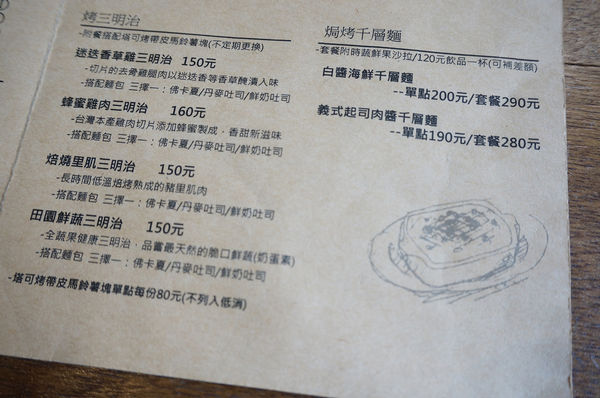 烤三明治
-附餐搭配塔可烤帶皮馬鈴薯塊(不定期更換)
迷迭香草雞三明治 150元
-切片的去骨雞腿肉以迷迭香等香草醃漬入味
-搭配麵包 三擇一：佛卡夏/丹麥吐司/鮮奶吐司
蜂蜜雞肉三明治 160元
-台灣本產雞肉切片添加蜂蜜製成，香甜新滋味
-搭配麵包 三擇一：佛卡夏/丹麥吐司/鮮奶吐司
焙燒里肌三明治 150元
-長時間低溫焙烤熟成的豬里肌肉
-搭配麵包 三擇一：佛卡夏/丹麥吐司/鮮奶吐司
田園鮮蔬三明治 150元
-全蔬果健康三明治，品嘗最天然的脆口鮮蔬(奶蛋素)
-搭配麵包 三擇一：佛卡夏/丹麥吐司/鮮奶吐司
-塔可烤帶皮馬鈴薯塊單點每份80元(不列入低消)
焗烤千層麵
-套餐附時蔬鮮果沙拉/120元飲品一杯(可補差額)
白醬海鮮千層麵
--單點200元/套餐290元
義式起司肉醬千層麵
--單點190元/套餐280元